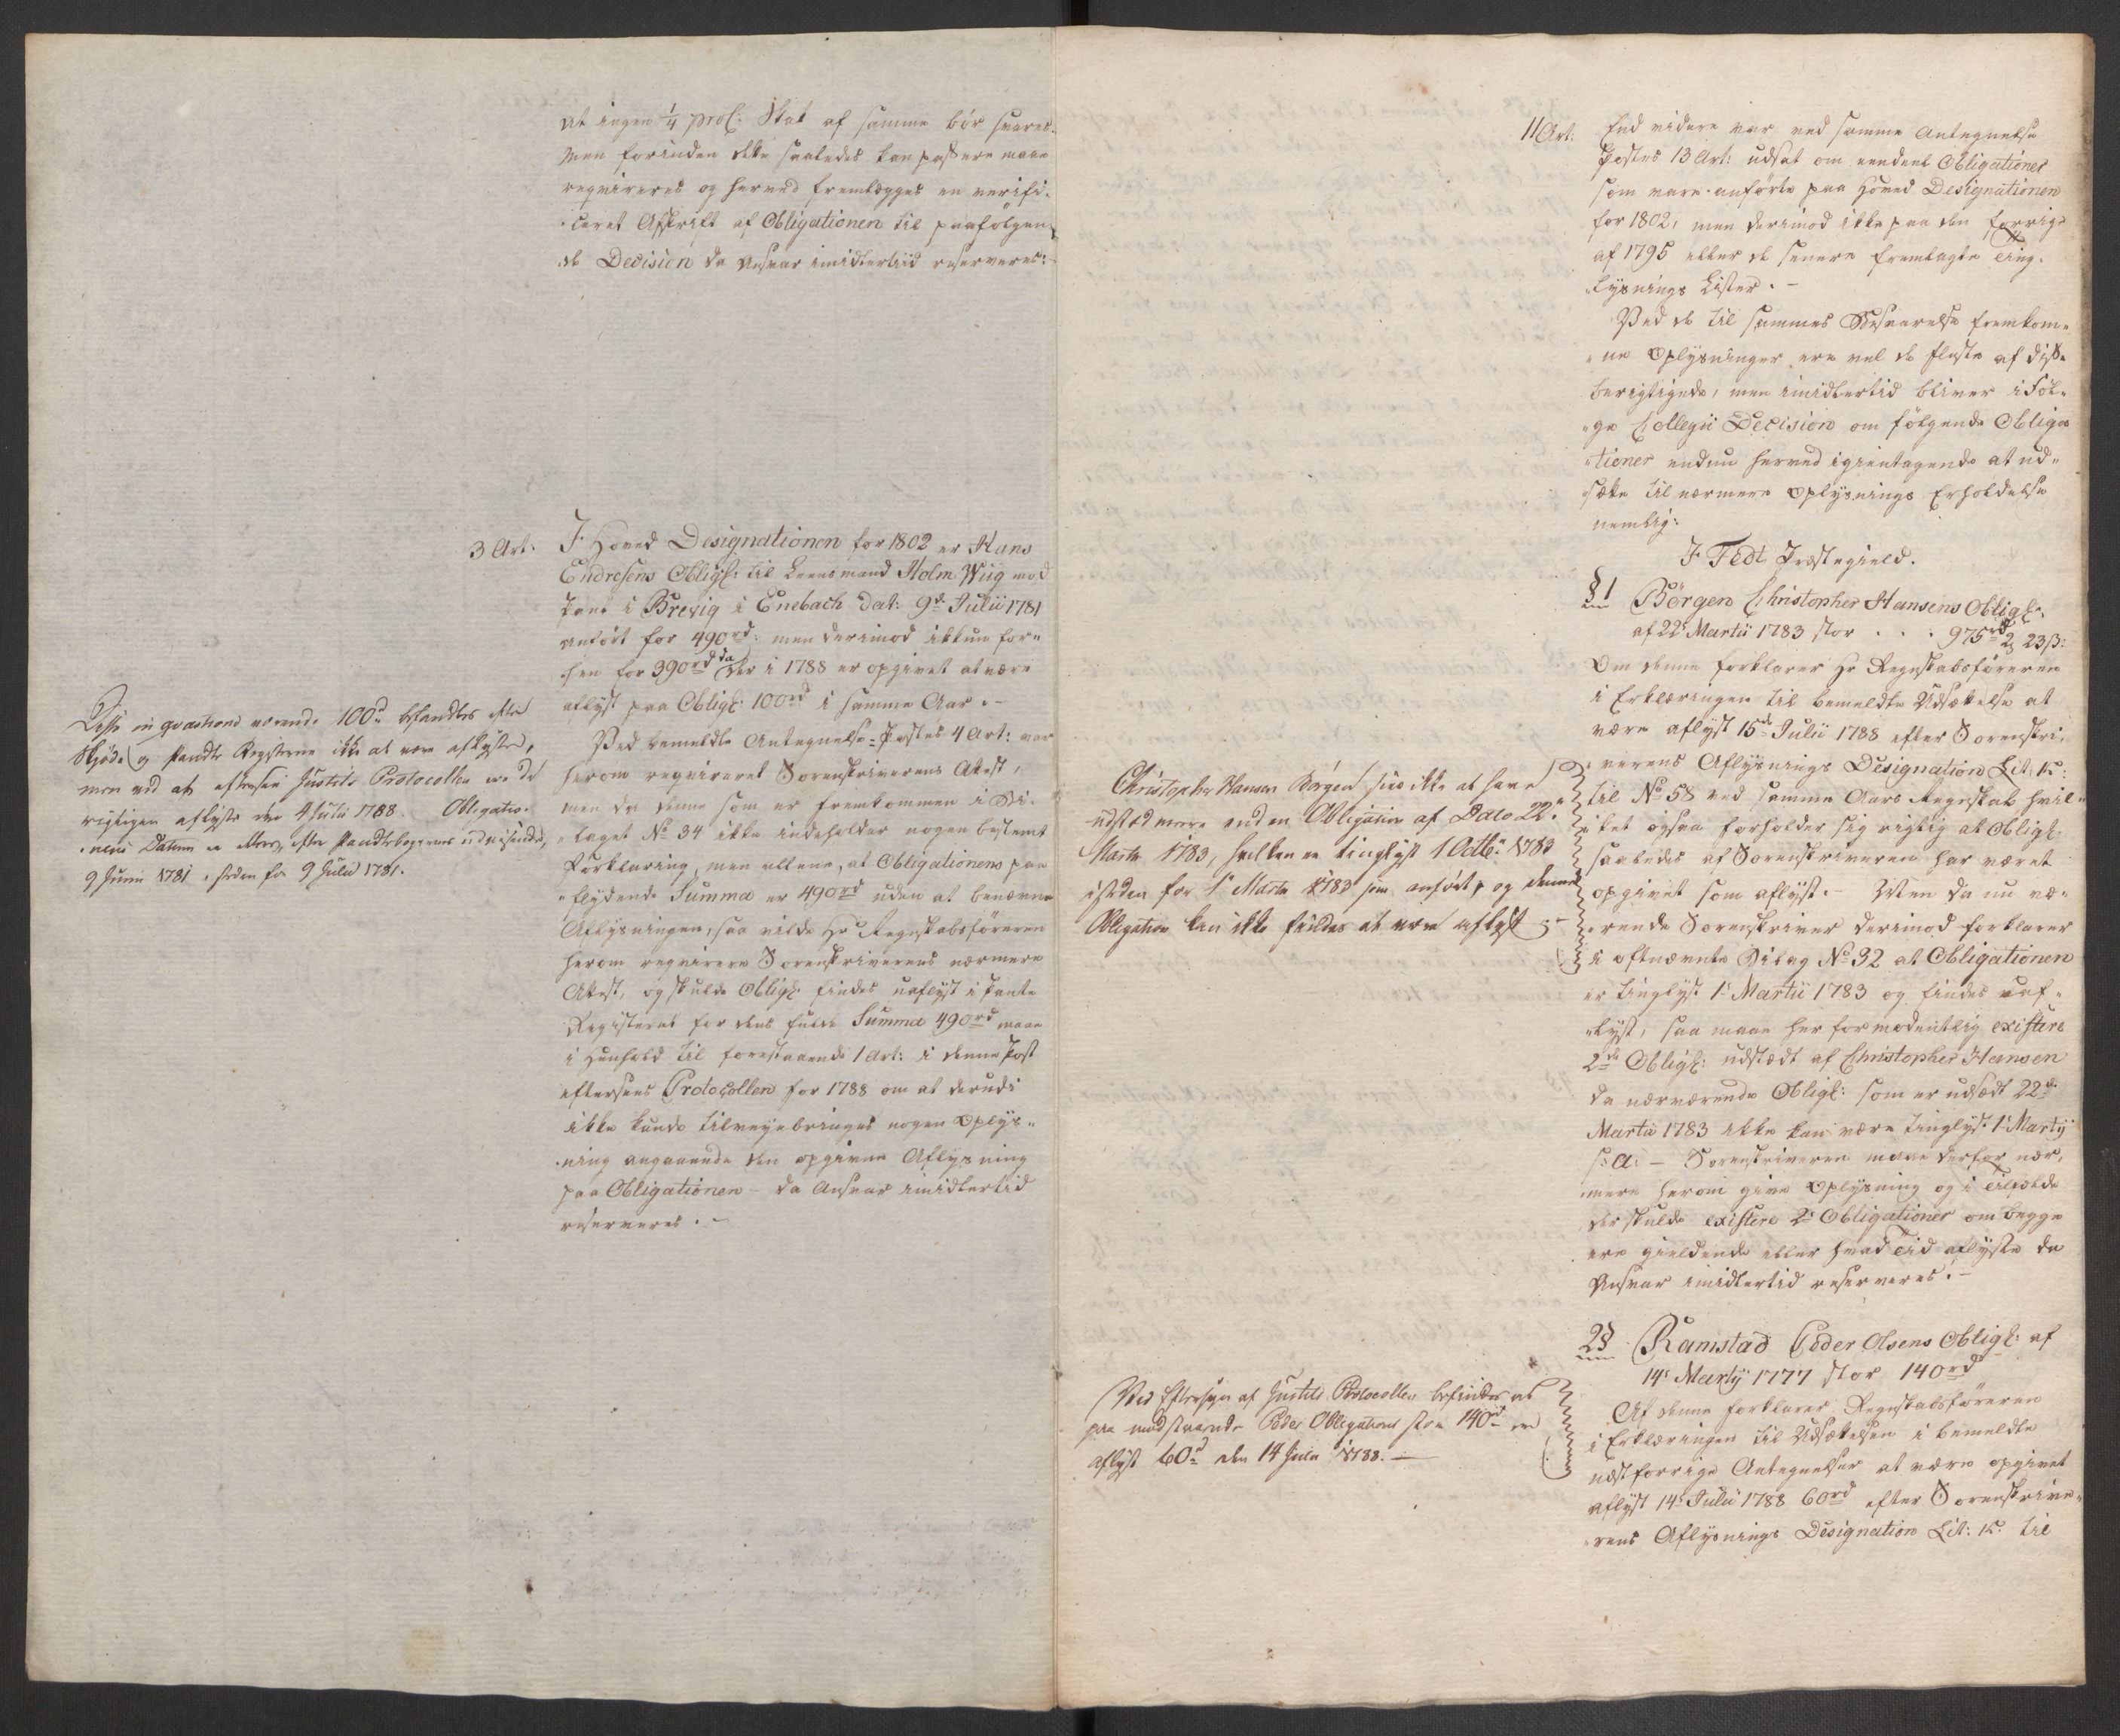 at ingen 1/4 proC: Skat af samme bör svares.
Men forinden dette saaledes kan passere maae
reqvireres og herved fremlægges en verifi-
ceret Afskrift af Obligationen til paafölgen-
de Decision da Ansvar imidlertiid reserveres:
3 Art:
I Hoved Designationen for 1802 er Hans
Endresens Obligt: til Leensmand Holm Wiig mod
Pant i Brevig i Enebach dat: 9de Julii 1781
anfört for 490rd: men derimod ikkun for-
hen for 390rd da der i 1788 er opgivet at være
aflyst paa Obligt: 100rd i samme Aar.-
Ved bemeldte Antegnelse-Postes 4 Art: var
herom reqvireret Sorenskriverens Atest,
men da denne som er fremkommen i Bi-
laget No 34 ikke indeholder nogen bestemt
Forklaring, men allene, at Obligationens paa
lydende Summa er 490rd uden at benævne
Aflysningen, saa vilde Hr Regnskabsföreren
herom reqvirere Sorenskriverens nærmere
Atest, og skulde Obligt: findes uaflyst i Pante
Registeret for dens fulde Summa 490rd maae
i Henhold til forestaaende 1 Art: i denne Post
eftersees Protocollen for 1788 om at derudi
ikke kunde tilveyebringes nogen Oplys-
ning angaaende den opgivne Aflysning
paa Obligationen - da Ansvar imidlertid
reserveres.-
Disse in qvæstione værende 100rd befandtes efter
Skjöde og Pandte Registerne ikke at være aflyste,
men ved at eftersee Justits Protocollen ere de
rigtigen aflyste den 4 Julii 1788. Obligatio-
nens Datum er ellers, efter Pandtebogernes udvisende,
9 Junii 1781, isteden for 9 Julii 1781.
11 Art:
End videre var ved samme Antegnelse
Postes 13 Art: udsat om eendeel Obligationer
som vare anförte paa Hoved Designationen
for 1802, men derimod ikke paa den forrige
af 1795 eller de senere fremlagte Ting-
lysnings Lister.-
Ved de til sammes Besvarelse fremkom-
ne Oplysninger ere vel de fleste af disse
berigtigede, men imidlertid bliver i Föl-
ge Collegii Decision om fölgende Obliga
tioner endnu herved igientagende at ud-
sætte til nærmere Oplysnings Erholdelse
nemlig:
I Fedt Præstegield.
§ 1 Börgen Christopher Hansens Obligt:
af 22de Martii 1783 stor . . . 975rd 2 23ß:
Om denne forklarer Hr Regnskabsföreren
i Erklæringen til bemeldte Udsættelse at
være aflyst 15de Julii 1788 efter Sorenskri-
verens Aflysnings Designation Lit: K:
til No 58 ved samme Aars Regnskab hvil-
ket ogsaa forholder sig rigtig at Obligt:
saaledes af Sorenskriveren har været
opgivet som aflyst.- Men da nu væ-
rende Sorenskriver derimod forklarer
i oftnævnte Bilag No 32 at Obligationen
er tinglyst 1de Martii 1783 og findes uaf-
lyst, saa maae her formodentlig existere
2de Obligt: udstædt af Christopher Hansen
da nærværende Obligt: som er udstædt 22de
Martii 1783 ikke kan være tinglyst 1de Martij
s: a: - Sorenskriveren maae derfor nær-
mere herom give Oplysning og i Tilfælde
der skulde existere 2de Obligationer om begge
ere gieldende eller hvad Tid aflyste da
Ansvar imidlertid reserveres.-
Christopher Hansen Börgen sees ikke at have
udstæd mere end en Obligation af Dato 22de
Martii 1783, hvilken er tinglyst 1 Octbr 1783
isteden for 1de Martii 1783 som anfört, og denne
Obligation kan ikke findes at være aflyst
2 § Ramstad Peder Olsens Obligt: af
14de Martij 1777 stor 140rd
Af denne forklarer Regnskabsföreren
i Erklæringen til Udsættelsen i bemeldte
næstforrige Antegnelser at være opgivet
aflyst 14de Julii 1788 60rd efter Sorenskrive-
rens Aflysnings Designation Lit: K: til
Ved Eftersyn af Justits Protocollen befindes at
paa modstaaende Peder Obligation stor 140rd er
aflyst 60rd den 14 Julii 1788.-